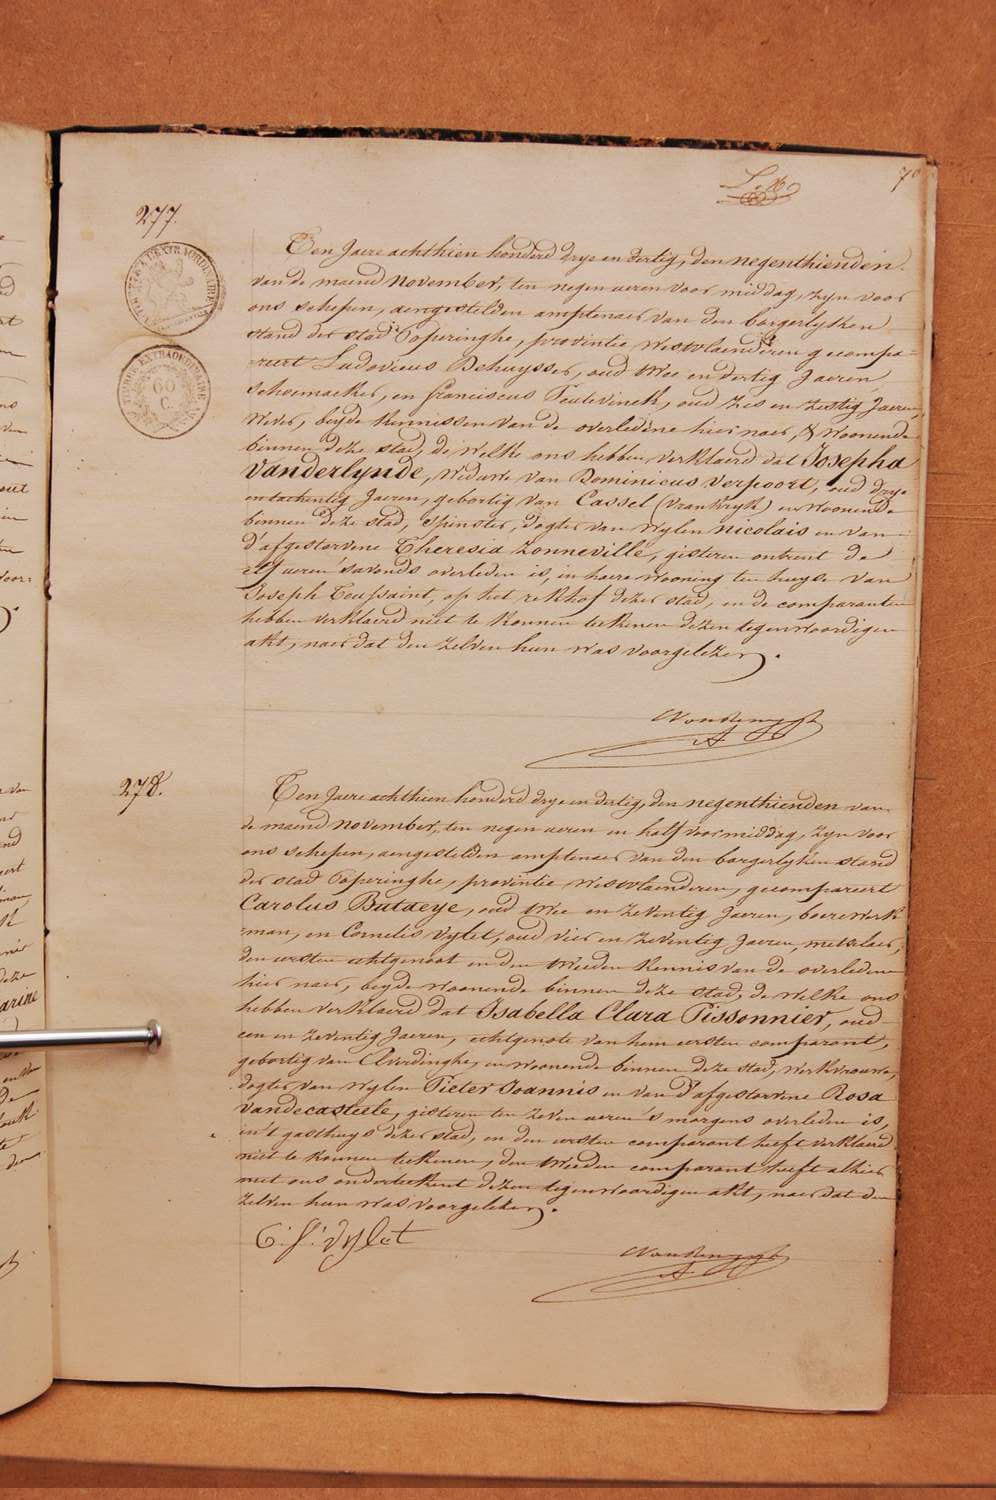 70
277.
TIMBRE EXTRAORDINAIRE
60 C.
Ten Jaere achthien honderd drye en dertig, den negenthienden
van de maend November, ten negen ueren voor middag, zyn voor
ons schepen, aengestelden amptenaer van den borgerlyken
stand der stad Poperinghe, provintie Westvlaenderen gecompa-
reert Ludovicus Dehuysser, oud twee en dertig Jaeren
schoemaeker, en franciscus Teutevinck, oud zes en zestig Jaeren,
wever, beyde kennissen van de overledene hier naer, & woonende
binnen deze stad, de welke ons hebben verklaerd dat Josepha
Vanderlynde, weduwe van Dominicus Verpoort, oud drye
en tachentig Jaeren, gebortig van Cassel (vrankryk) en woonende
binnen deze stad, spinster, dogter van wylen nicolais en van
d'afgestorvene Theresia Zonneville, gisteren ontrent de
elf ueren savonds overleden is, in haere wooning ten huyse van
Joseph Toussaint, op het rekhof dezer stad, en de comparanten
hebben verklaerd niet te konnen teekenen dezen tegenwoordigen
akt, naer dat den zelven hun was voorgelezen.
278.
Ten Jaere achthien honderd drye en dertig, den negenthienden van
de maend November, ten negen ueren en half voormiddag, zyn voor
ons schepen, aengestelden amptenaer van den borgerlyken stand
der stad Poperinghe, provintie Westvlaenderen, gecompareert
Carolus Bataeye, oud twee en zeventig Jaeren, boerewerk-
man, en Cornelis vylet, oud vier en zeventig Jaeren, metselaer,
den eersten echtgenoot en den tweeden kennis van de overledene
hier naer, beyde woonende binnen deze stad, de welke ons
hebben verklaerd dat Isabella Clara Pissonnier, oud
een en zeventig Jaeren, echtgenote van hem eersten comparant,
gebortig van Elverdinghe, en woonende binnen deze stad, werkvrouwe,
dogter van wylen Pieter Joannis en van d'afgestorvene Rosa
Vandecasteele, gisteren ten zeven ueren 's morgens overleden is,
in't gasthuys dezer stad, en den eersten comparant heeft verklaerd
niet te konnen teekenen, den tweeden comparant heeft alhier
met ons onderteekent dezen tegenwoordigen akt, naer dat den
zelven hun was voorgelezen.
C. f. vylet